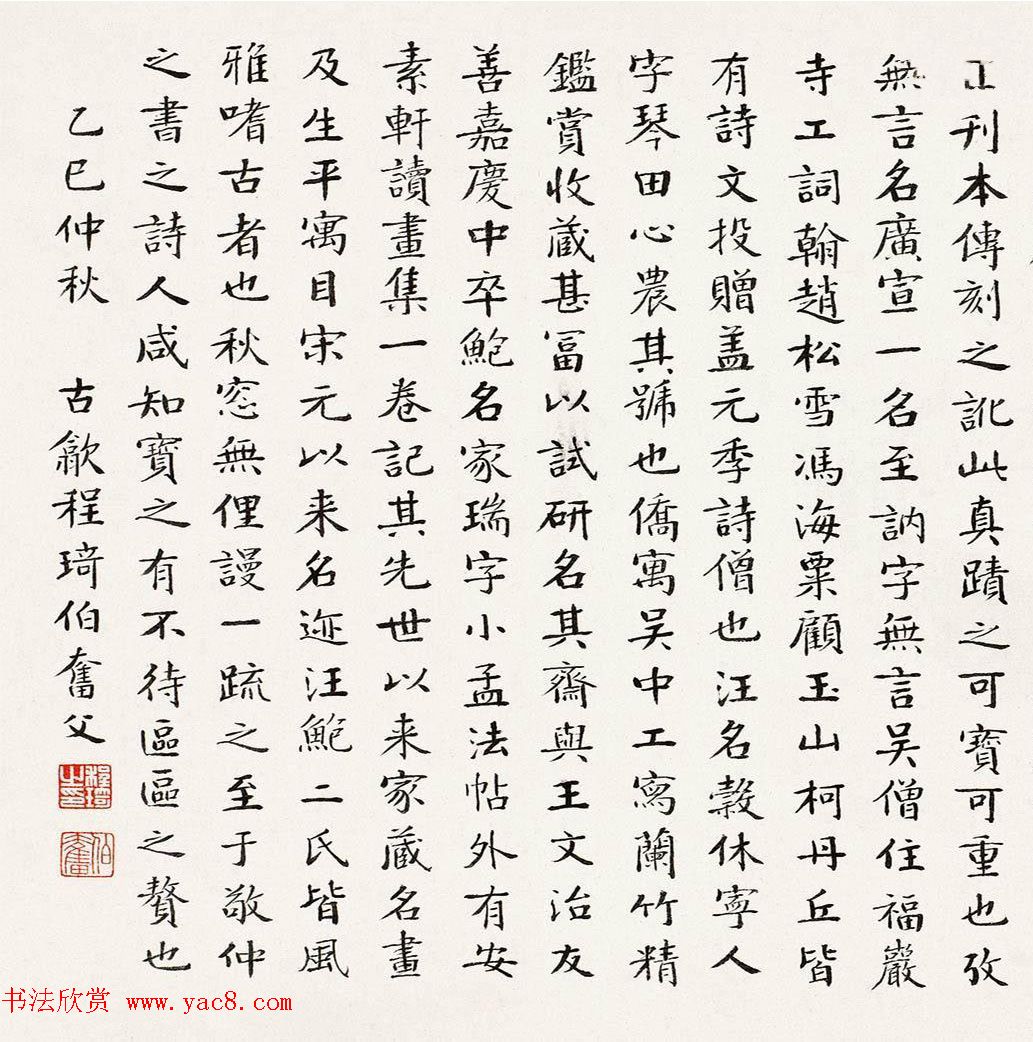 正刊本傳刻之訛此真蹟之可寶可重也攷
無言名廣宣一名至訥字無言吴僧住福巖
寺工詞翰趙松雪馮海粟顧玉山柯丹丘皆
有詩文投贈盖元季詩僧也汪名穀休寧人
字琴田心農其號也僑寓吴中工寫蘭竹精
鑑賞收蔵甚冨以試研名其齋與王文治友
善嘉慶中卒鮑名家瑞字小孟法帖外有安
素軒讀畫集一卷記其先世以来家蔵名畫
及生平寓目宋元以来名迹汪鮑二氏皆風
雅嗜古者也秋窓無俚謾一疏之至于敬仲
之書之詩人咸知寶之有不待區區之贅也
乙巳仲秋 古歙程琦伯奮父
程琦之印
伯奮
书法欣赏 www.yac8.com